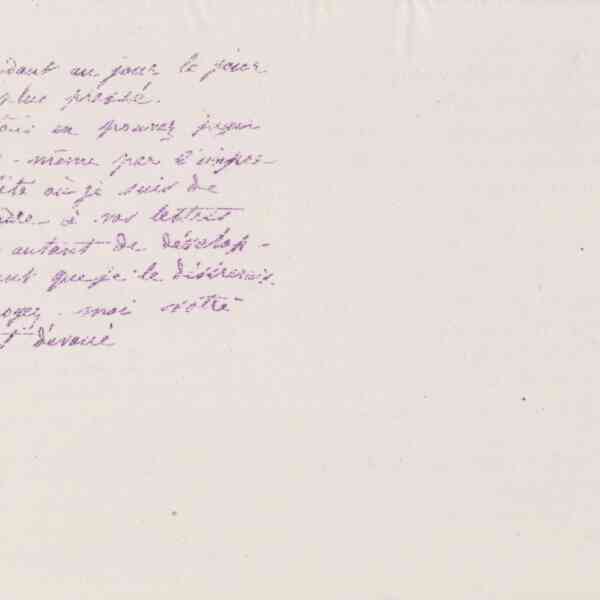 dant au jour le jour
plus pressé.
en pouvez juger
- même par l'impos-
ité où je suis de
dre à vos lettres
autant de dévelop-
ent que je le désirerais.
oyez - moi votre
t dévoué